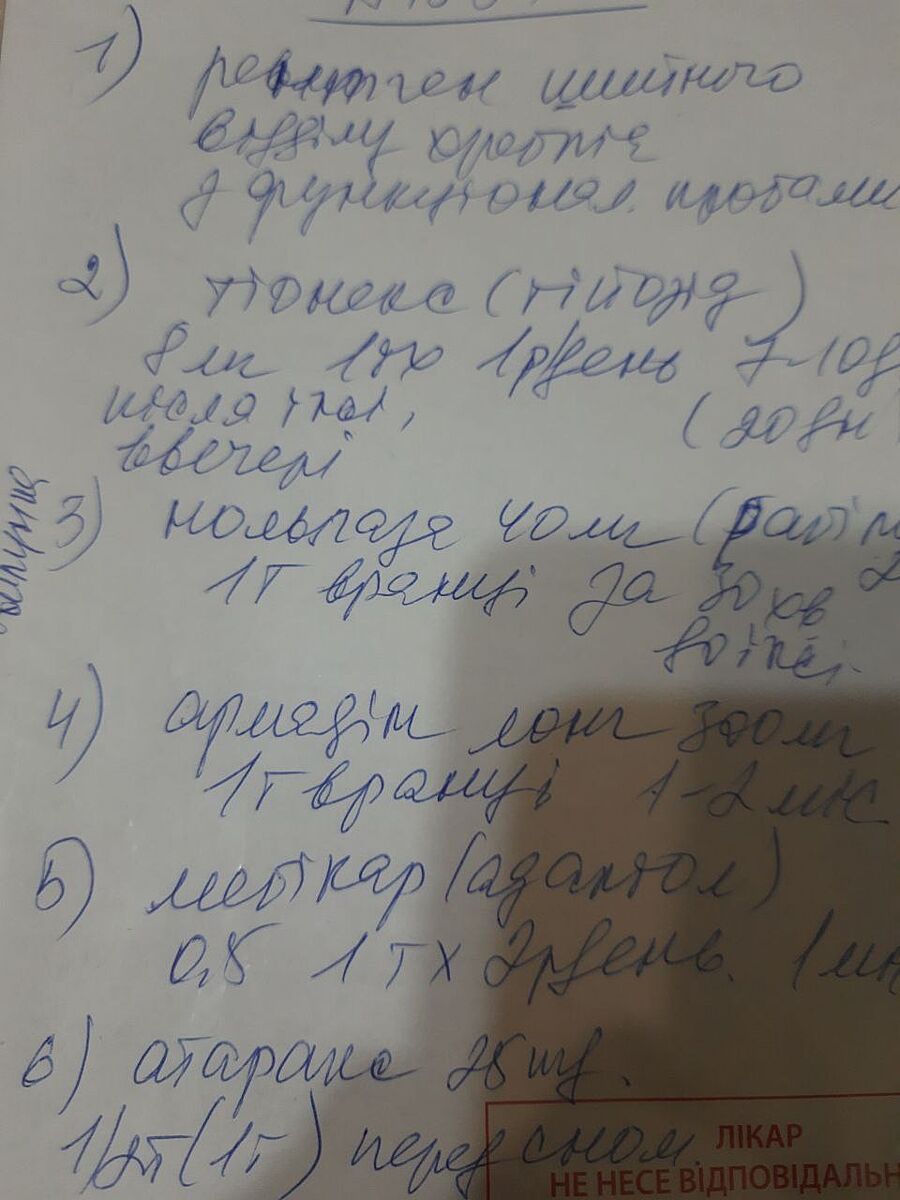 1) рентген шийного
відділу хребта
з функціонал. пробами
2) тіонекс (тійозид)
8 мг 1т х 1р/день 7-10д
після їжі,
(20 дн
ввечері
3) нольпаза 40мг
1т вранці за 30 хв
до їжі.
4) армадін лонг 300мг
1т вранці 1-2 міс
5) мебікар (адаптол)
0,5 1т х 2р/день. 1 мі
6) атаракс 25 мг.
1/2т (1т) перед сном
ЛІКАР
НЕ НЕСЕ ВІДПОВІДАЛЬН